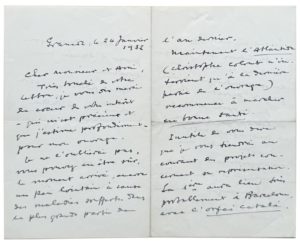 Grenade, le 24 Janvier
1932
Cher Monsieur et Ami,
Très touché de votre
lettre, je vous dis merci
de coeur de votre intérêt
- qui m'est précieux et
que j'estime profondément -
pour mon ouvrage.
Je ne l'oublierai pas,
vous pouvez en être sûr,
le moment arrivé, encore
un peu lointain à cause
des maladies souffertes dans
la plus grande partie de
l'an dernier.
Maintenant l'Atlantida
(Christophe Colomb n'in-
tervient qu'à la dernière
partie de l'ouvrage)
recommence à marcher
en bonne santé.
Inutile de vous dire
que je vous tiendrai au
courant des projets con-
cernant sa représentation.
La 1ère aura lieu
probablement à Barcelone,
avec l'orfeó català.